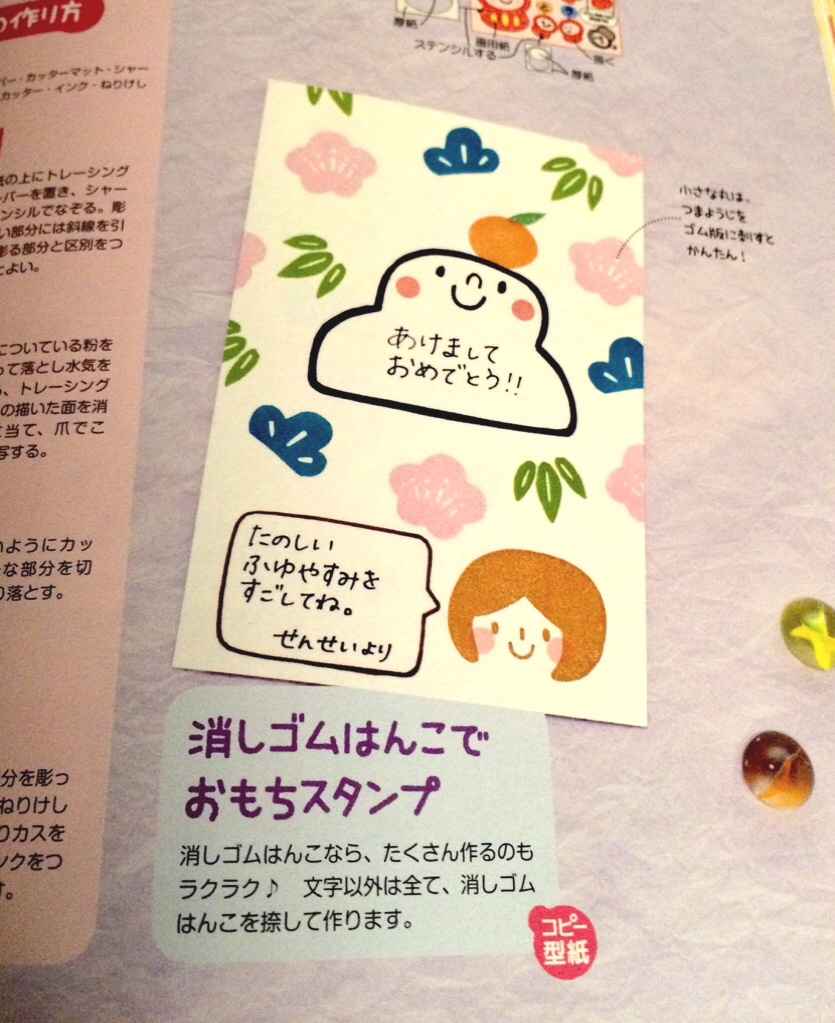 の作り方
厚紙
ステンシルする
画用紙
厚紙
描く
パー・カッターマット・シャー
カッター・インク・ねりけし
紙の上にトレーシング
ーパーを置き、シャー
ンシルでなぞる。彫
い部分には斜線を引
彫る部分と区別をつ
とよい。
小さな丸は、
つまようじを
ゴム版に刺すと
かんたん!
あけまして
おめでとう!!
についている粉を
って落とし水気を
、トレーシング
の描いた面を消
に当て、爪でこ
写する。
たのしい
ふゆやすみを
すごしてね。
せんせいより
のようにカッ
な部分を切
り落とす。
消しゴムはんこで
おもちスタンプ
消しゴムはんこなら、たくさん作るのも
ラクラク♪ 文字以外は全て、消しゴム
はんこを捺して作ります。
コピー
型紙
分を彫っ
ねりけし
りカスを
ンクをつ
す。